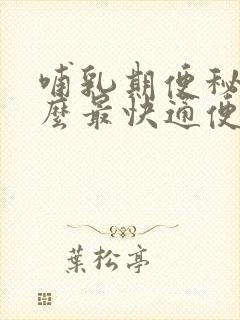 哺乳期便秘
麼最快通便
葉松亭